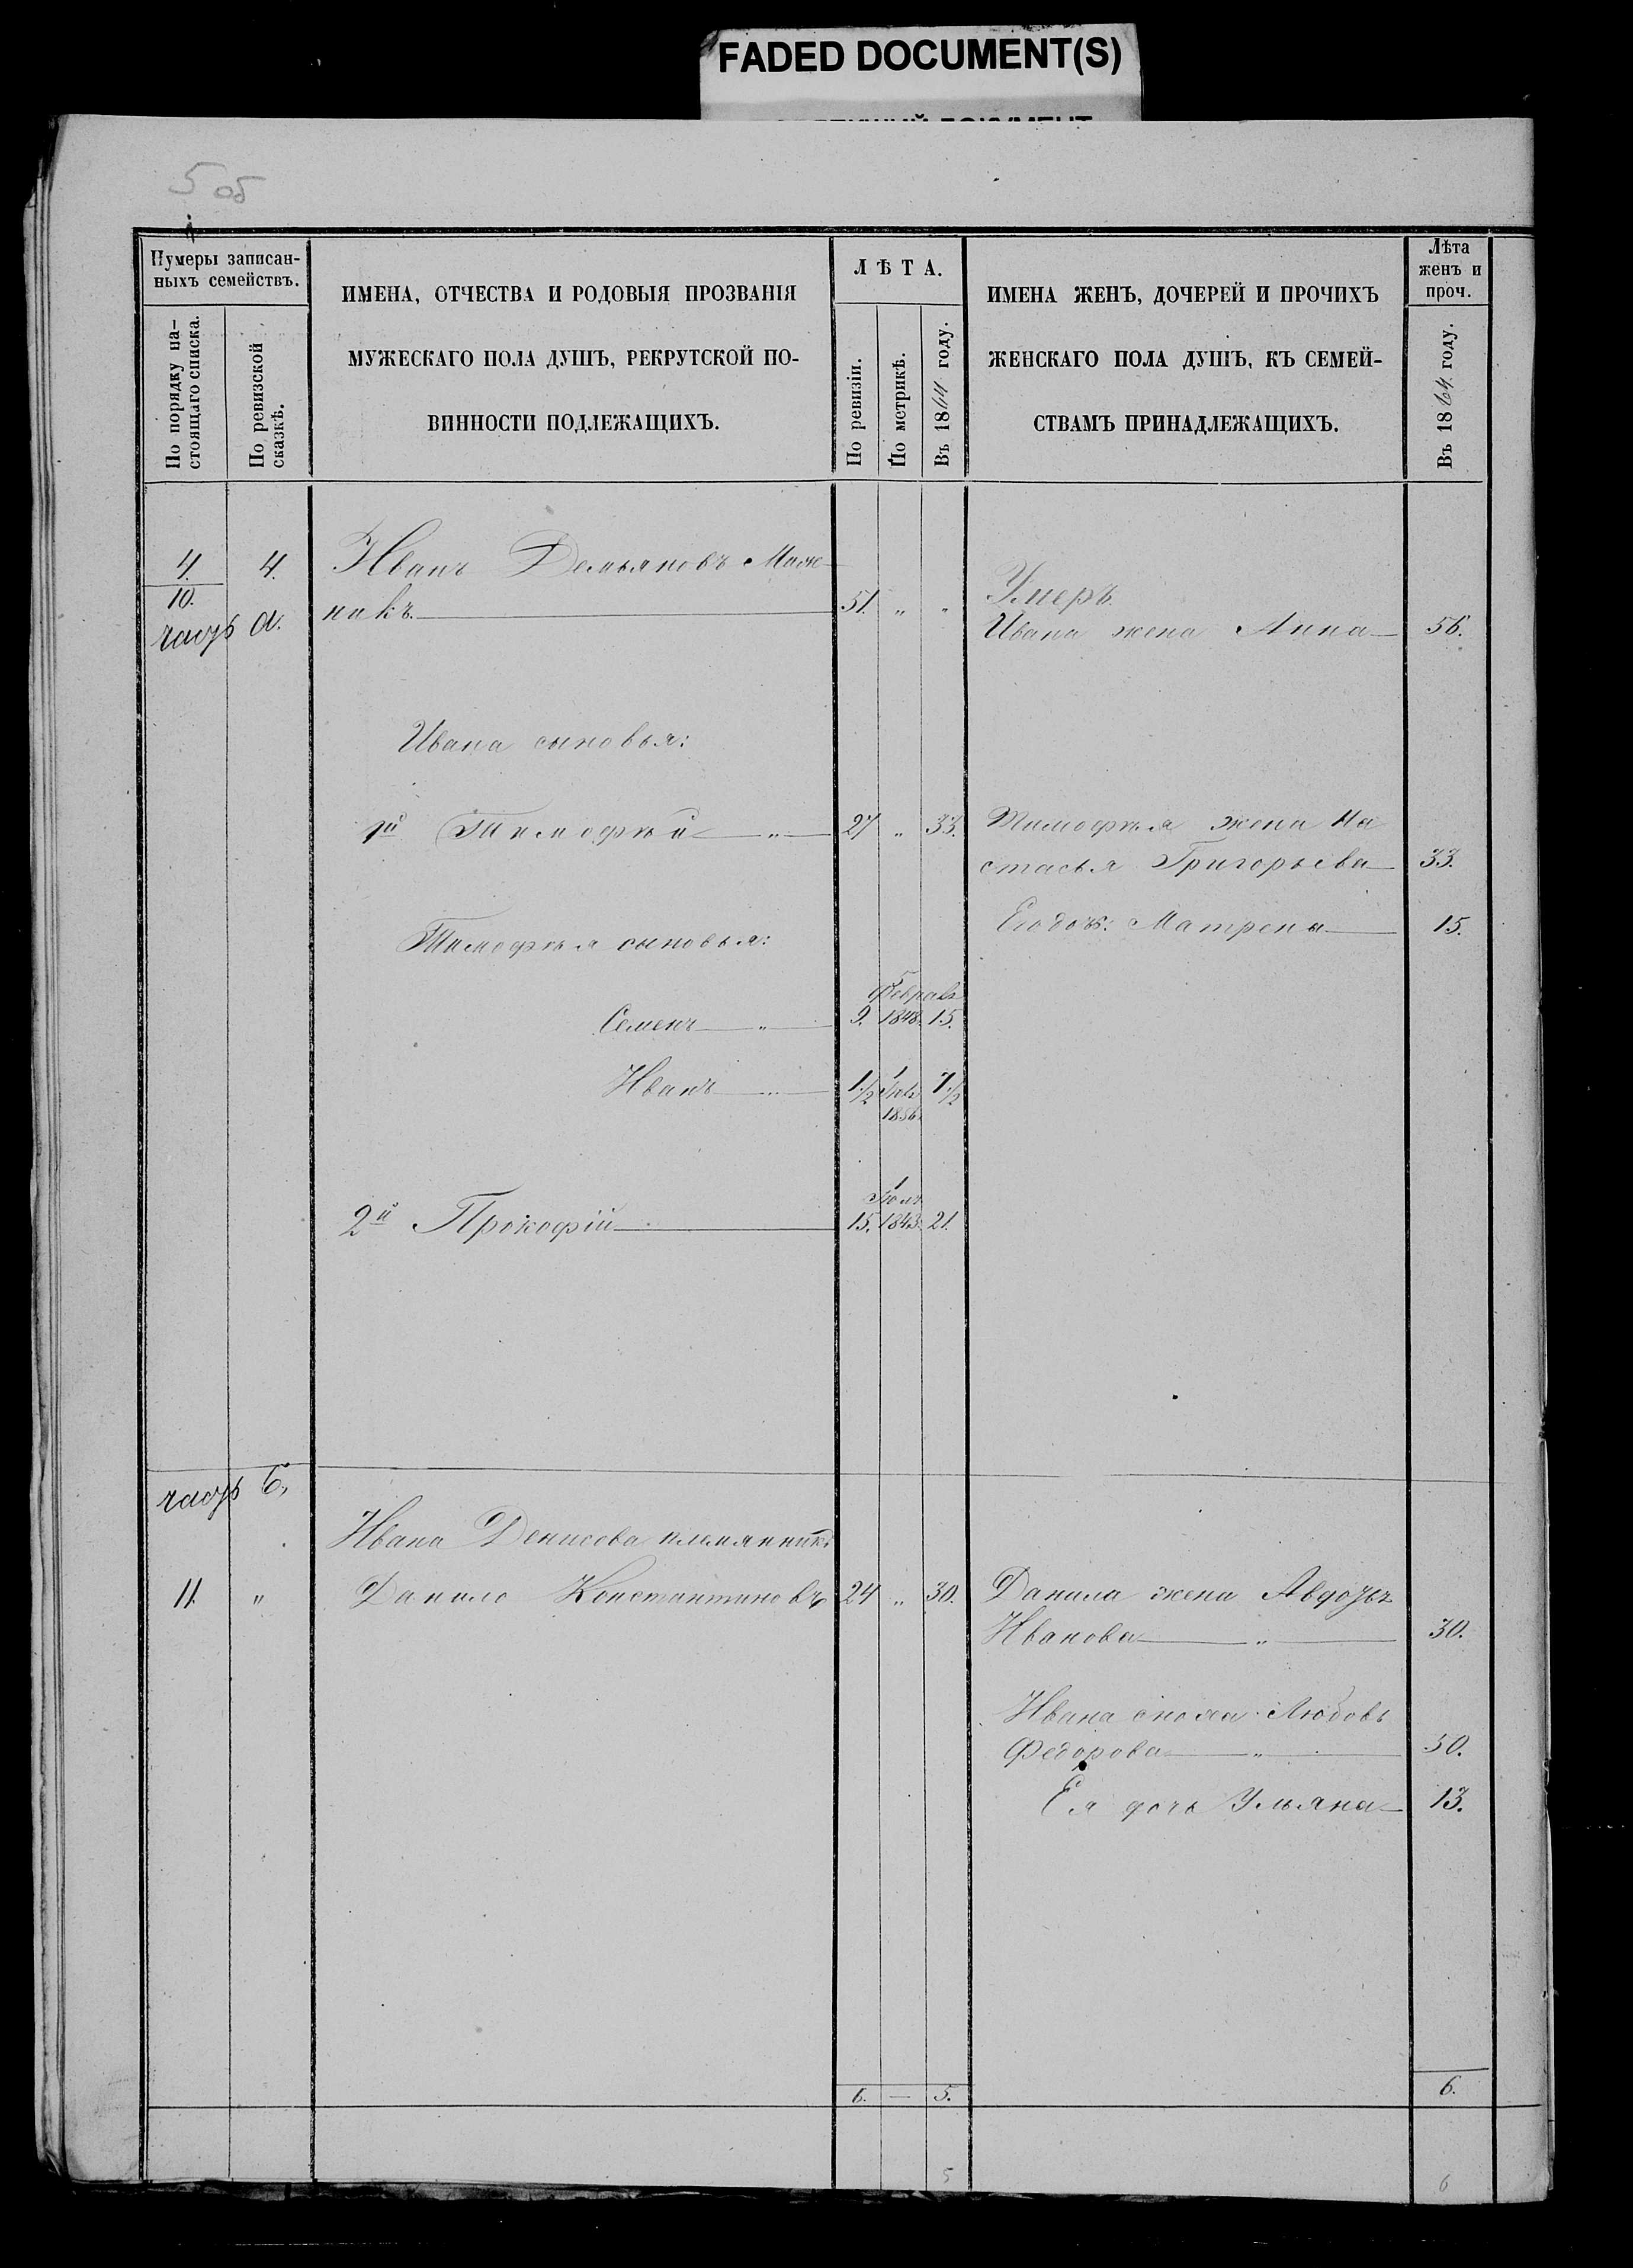 FADED DOCUMENT(S)
5 об
Нумеры записан-
ныхъ семействъ.
По порядку на-
стоящаго списка.
По ревизской
сказкѣ.
ИМЕНА, ОТЧЕСТВА И РОДОВЫЯ ПРОЗВАНІЯ
МУЖЕСКАГО ПОЛА ДУШЪ, РЕКРУТСКОЙ ПО-
ВИННОСТИ ПОДЛЕЖАЩИХЪ.
ЛѢТА.
По ревизіи.
По метрикѣ.
Въ 1864 году.
ИМЕНА ЖЕНЪ, ДОЧЕРЕЙ И ПРОЧИХЪ
ЖЕНСКАГО ПОЛА ДУШЪ, КЪ СЕМЕЙ-
СТВАМЪ ПРИНАДЛЕЖАЩИХЪ.
Лѣта
женъ и
проч.
Въ 1864 году.
4. 4. Иванъ Демьяновъ
10. никъ. 51. " " Умеръ
часть а. Ивана жена Анна 56.
Ивана сыновья:
1й Тимофѣй " 27 " 33. Тимофѣя жена На
стасья Григорьева 33.
Его доч: Матрена 15.
Тимофѣя сыновья:
5
Февраль
Семенъ " 9. 1848. 15.
Иванъ " 1 1/2 1 7 1/2
1856.
1
2й Прокофій 15. 1843. 21.
часть б.
Ивана Денисова племянникъ
11. " Данило Константиновъ 24 " 30. Данила жена Авдотья
Иванова " 30.
Ивана сноха Любовь
Федорова " 50.
Ея дочь Ульяна 13.
6. — 5. 6.
5 6